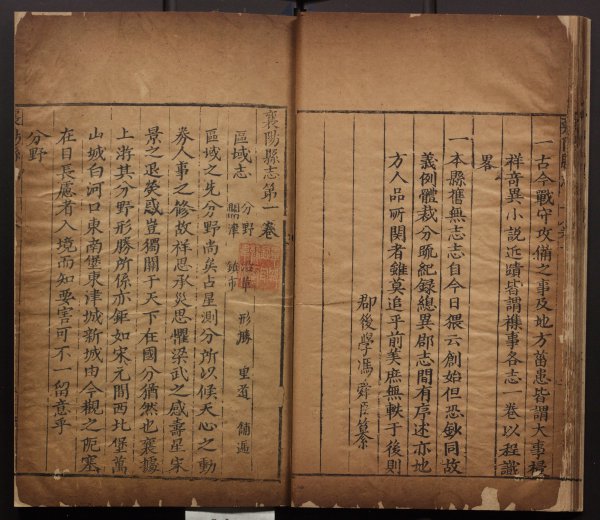 一古今戰守攻備之事及地方菑患皆謂大事祲
祥奇異小説近蹟皆謂襍事各志一卷以程識
畧
一本縣舊無志志自今日猥云創始但恐鈔同故
義例體裁分疏紀録總異郡志間有序述亦地
方人品所関者雖莫追乎前美庶無軼于後則
郡後學馮舜臣纂
襄陽縣志第一卷
區域志 分野 沿革 形勝 里道 鋪遞
關津 鎮市
區域之先分野尚矣占星測分所以候天心之動
劵人事之修故祥思承災思懼梁武之感壽星宋
景之退熒惑豈獨關于天下在國分猶然也襄據
上游其分野形勝所係亦鉅如宋元間西北堡萬
山城白河口東南堡東津城新城由今觀之阨塞
在目長慮者入境而知要害可不一留意乎
分野